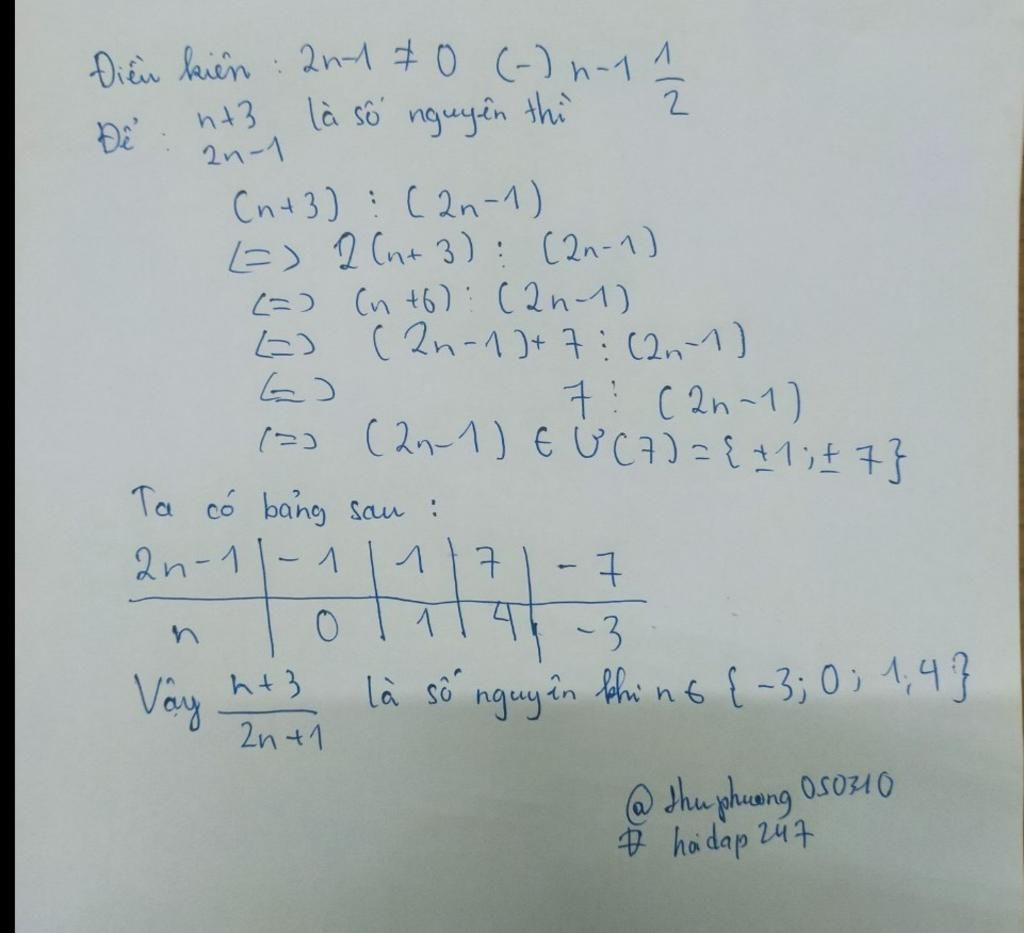 Điều kiện : 2n-1 ≠ 0 (-) n-1 1/2
Để : n+3 / 2n-1 là số nguyên thì
(n+3) ⋮ (2n-1)
(=) 2(n+3) ⋮ (2n-1)
(=) (n+6) ⋮ (2n-1)
(=) (2n-1)+7 ⋮ (2n-1)
(=) 7 ⋮ (2n-1)
(=) (2n-1) ∈ Ư(7) = {±1;±7}
Ta có bảng sau :
2n-1 | -1 | 1 | 7 | -7
n | 0 | 1 | 4 | -3
Vậy n+3 / 2n+1 là số nguyên khi n ∈ {-3; 0; 1; 4}
@ thuphuong050310
# hoidap247